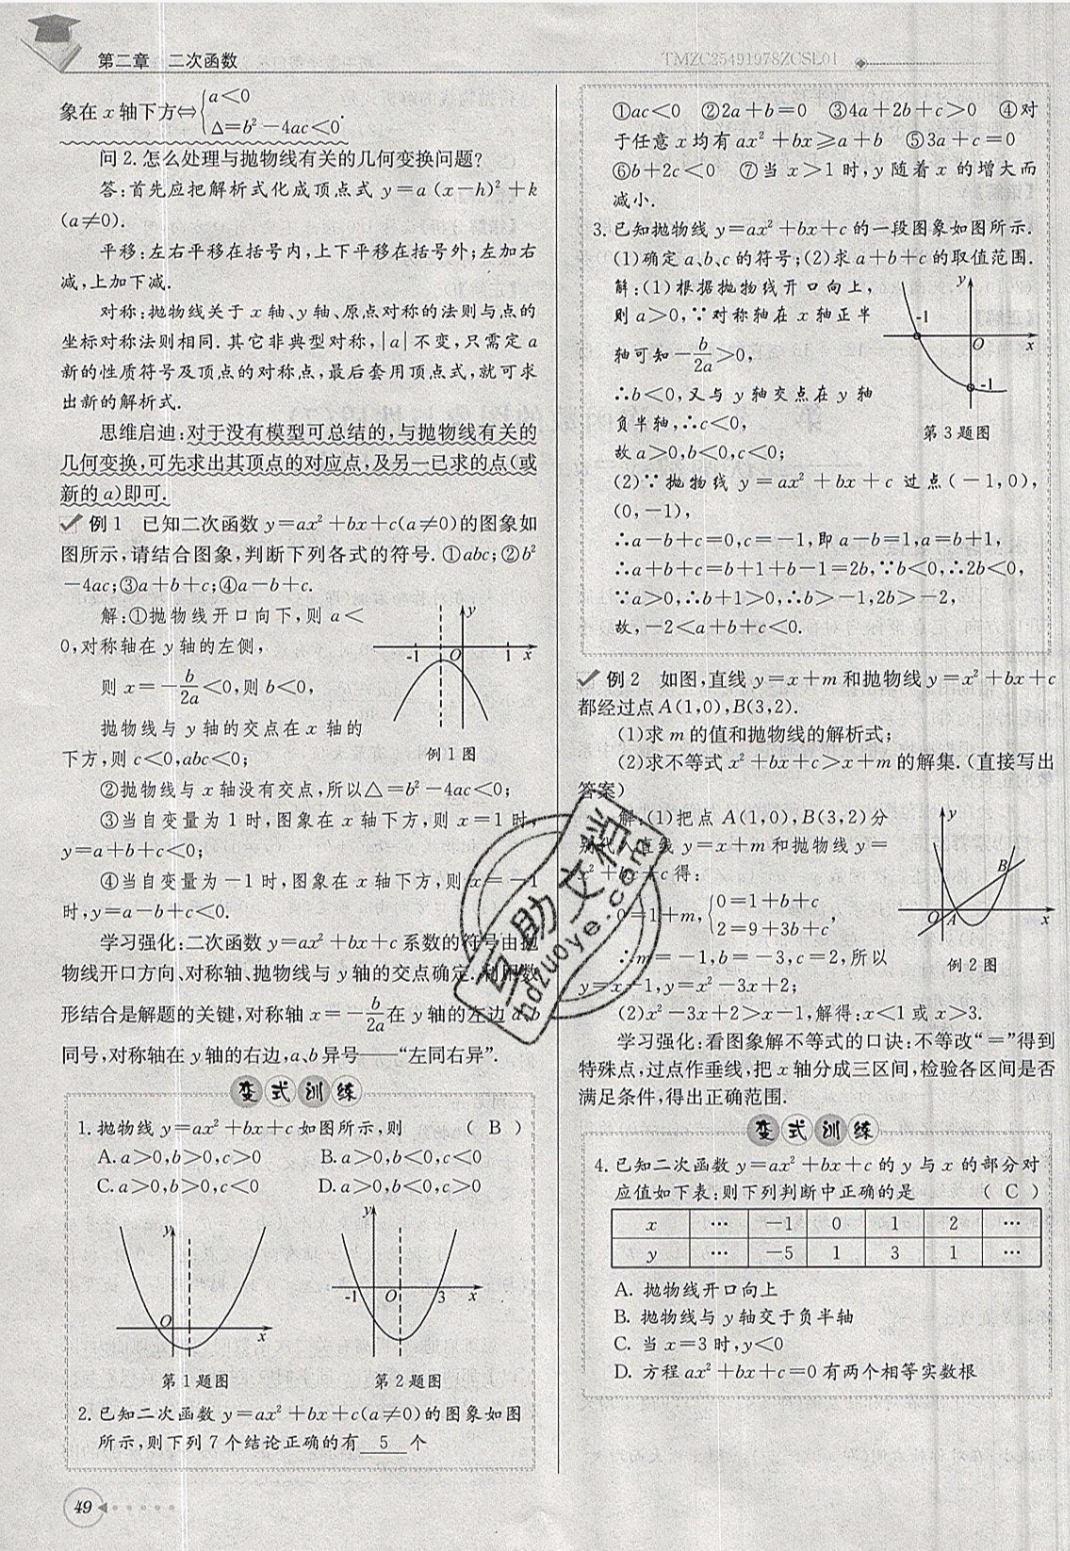 第二章 二次函数
TMZC25491978ZCSL01
象在 x 轴下方⇔{a<0
△=b²-4ac<0.
问 2. 怎么处理与抛物线有关的几何变换问题?
答:首先应把解析式化成顶点式 y=a(x-h)²+k
(a≠0).
平移:左右平移在括号内,上下平移在括号外;左加右
减,上加下减.
对称:抛物线关于 x 轴、y 轴、原点对称的法则与点的
坐标对称法则相同. 其它非典型对称,|a|不变,只需定 a
新的性质符号及顶点的对称点,最后套用顶点式,就可求
出新的解析式.
思维启迪:对于没有模型可总结的,与抛物线有关的
几何变换,可先求出其顶点的对应点,及另一已求的点(或
新的 a)即可.
例 1 已知二次函数 y=ax²+bx+c(a≠0)的图象如
图所示,请结合图象,判断下列各式的符号. ①abc;②b²
-4ac;③a+b+c;④a-b+c.
解:①抛物线开口向下,则 a<
0,对称轴在 y 轴的左侧,
则 x=-b/2a<0,则 b<0,
抛物线与 y 轴的交点在 x 轴的
下方,则 c<0,abc<0;
y
-1 O 1 x
例 1 图
②抛物线与 x 轴没有交点,所以△=b²-4ac<0;
③当自变量为 1 时,图象在 x 轴下方,则 x=1 时,
y=a+b+c<0;
④当自变量为-1 时,图象在 x 轴下方,则 x=-1
时,y=a-b+c<0.
学习强化:二次函数 y=ax²+bx+c 系数的符号由抛
物线开口方向、对称轴、抛物线与 y 轴的交点确定. 利用数
形结合是解题的关键,对称轴 x=-b/2a 在 y 轴的左边 a、b
同号,对称轴在 y 轴的右边,a、b 异号——“左同右异”.
变式训练
1. 抛物线 y=ax²+bx+c 如图所示,则 ( B )
A. a>0,b>0,c>0 B. a>0,b<0,c<0
C. a>0,b>0,c<0 D. a>0,b<0,c>0
y
O x
第 1 题图
y
-1 O 3 x
第 2 题图
2. 已知二次函数 y=ax²+bx+c(a≠0)的图象如图
所示,则下列 7 个结论正确的有 5 个
49
①ac<0 ②2a+b=0 ③4a+2b+c>0 ④对
于任意 x 均有 ax²+bx≥a+b ⑤3a+c=0
⑥b+2c<0 ⑦当 x>1 时,y 随着 x 的增大而
减小.
3. 已知抛物线 y=ax²+bx+c 的一段图象如图所示.
(1)确定 a、b、c 的符号;(2)求 a+b+c 的取值范围.
解:(1)根据抛物线开口向上,
则 a>0,∵对称轴在 x 轴正半
轴可知-b/2a>0,
∴b<0,又与 y 轴交点在 y 轴
负半轴,∴c<0,
故 a>0,b<0,c<0;
y
-1 O x
-1
第 3 题图
(2)∵抛物线 y=ax²+bx+c 过点(-1,0),
(0,-1),
∴a-b+c=0,c=-1,即 a-b=1,a=b+1,
∴a+b+c=b+1+b-1=2b,∵b<0,∴2b<0,
∵a>0,∴b+1>0,∴b>-1,2b>-2,
故,-2<a+b+c<0.
例 2 如图,直线 y=x+m 和抛物线 y=x²+bx+c
都经过点 A(1,0),B(3,2).
(1)求 m 的值和抛物线的解析式;
(2)求不等式 x²+bx+c>x+m 的解集. (直接写出
答案)
解:(1)把点 A(1,0),B(3,2)分
别代入直线 y=x+m 和抛物线 y=
x²+bx+c 得:
0=1+m,{0=1+b+c
2=9+3b+c,
∴m=-1,b=-3,c=2,所以
y=x-1,y=x²-3x+2;
y
B
O A x
例 2 图
(2)x²-3x+2>x-1,解得:x<1 或 x>3.
学习强化:看图象解不等式的口诀:不等改“=”得到
特殊点,过点作垂线,把 x 轴分成三区间,检验各区间是否
满足条件,得出正确范围.
变式训练
4. 已知二次函数 y=ax²+bx+c 的 y 与 x 的部分对
应值如下表:则下列判断中正确的是 ( C )
x … -1 0 1 2 …
y … -5 1 3 1 …
A. 抛物线开口向上
B. 抛物线与 y 轴交于负半轴
C. 当 x=3 时,y<0
D. 方程 ax²+bx+c=0 有两个相等实数根
互助文档
hdzuoye.com